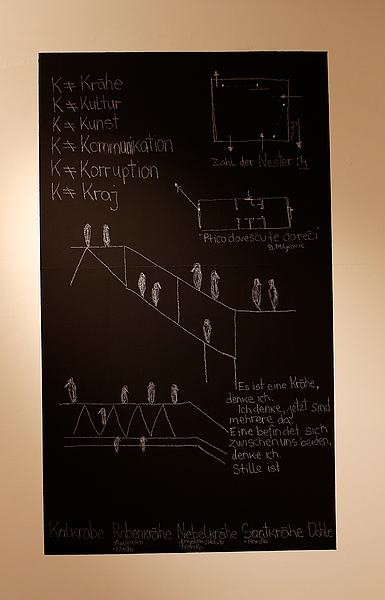 K≠ Krähe
K≠ Kultur
K≠ Kunst
K≠ Kommunikation
K≠ Korruption
K≠ Kraj
Zahl der Nester: 4
"Ptico dovešču te do reči"
Es ist eine Krähe,
denke ich.
Ich denke, jetzt sind
mehrere da.
Eine befindet sich
zwischen uns beiden,
denke ich.
Stille ist
Kolkrabe Rabenkrähe Nebelkrähe Saatkrähe Dohle